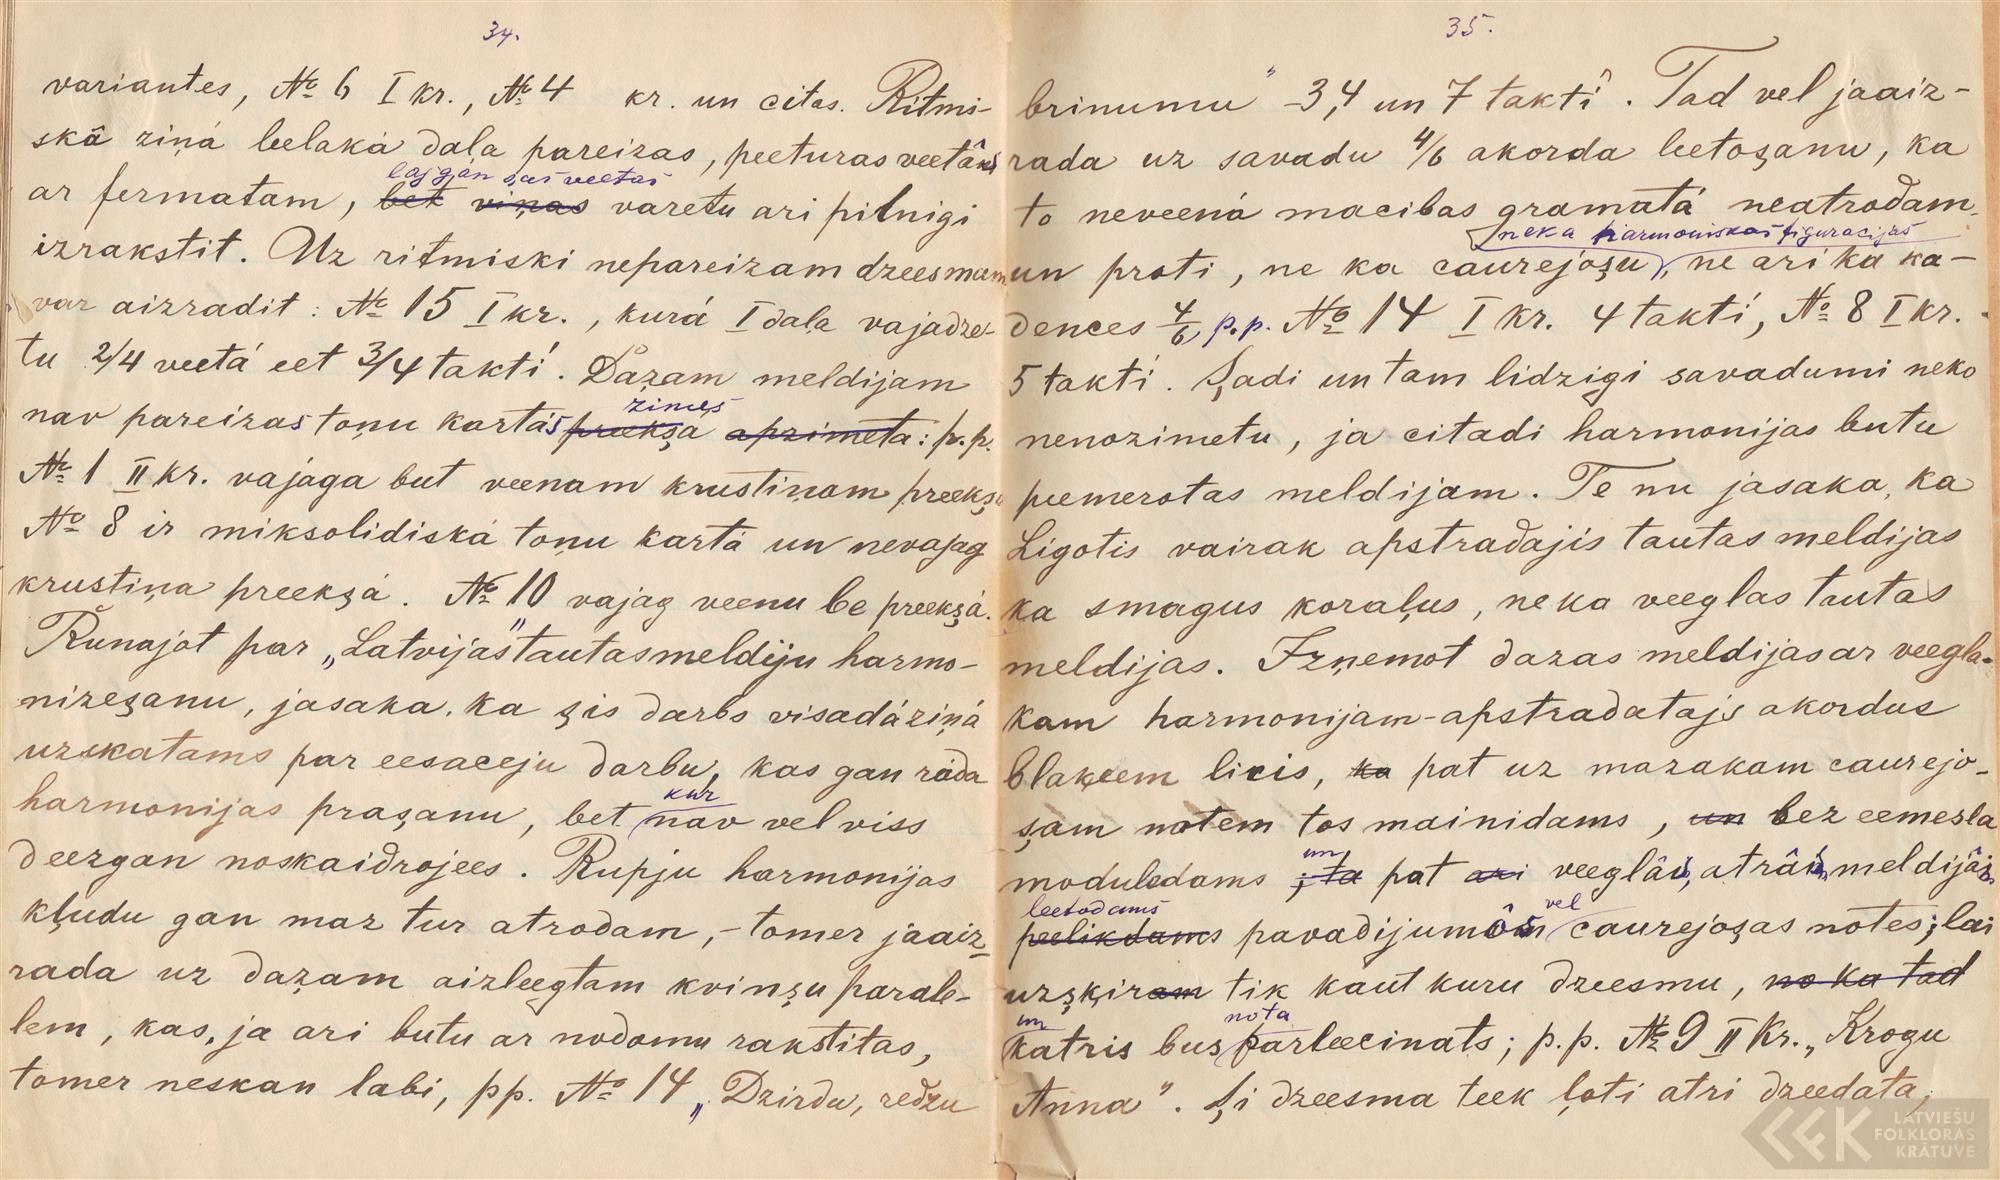 34.
variantes, № 6 I kr., № 4 kr. un citas. Ritmi-
skâ ziņá leelaká daļa pareizas, peeturas veetâs
lasgan șas veetas
ar fermatam, bet viņas varetu ari pilnigi
izrakstit. Uz ritmiski nepareizam dzeesmam
var aizradit: № 15 I kr., kurá I daļa vajadze-
tu 2/4 veetá eet 3/4 takti. Dazam meldijam
zimes
nav pareizas toņu kartas preekșa apzimeta: p.p.
№ 1 II kr. vajaga but veenam krustiņam preekșa
№ 8 ir miksolidiská toņu kartá un nevajag
krustiņa preekșá. № 10 vajag veenu be preekșá.
Runajot par „Latvijas" tautas meldiju harmo-
nizeșanu, jasaka, ka șis darbs visadá ziņá
uzskatams par eesaceju darbu, kas gan ráda
kur
harmonijas prașanu, bet nav vel viss
deezgan noskaidrojees. Rupju harmonijas
kļudu gan maz tur atrodam, - tomer jaaiz-
rada uz dazam aizleegtam kvinșu parale-
lem, kas, ja ari butu ar nodomu rakstitas,
tomer neskan labi, pp. № 14 „Dzirdu, redzu
35.
brinumu" 3,4 un 7 takti. Tad vel jaaiz-
rada uz savadu 4/6 akorda leetoșanu, ka
to neveená macibas gramatá neatrodam,
neka harmoniskas figuracijas
un proti, ne ka caurejoșu, ne ari ka ka-
dences 4/6 p.p. № 14 I kr. 4 takti, № 8 I kr.
5 takti. Șadi un tam lidzigi savadumi neko
nenozimetu, ja citadi harmonijas butu
peemerotas meldijam. Te nu jasaka, ka
Ligotis vairak apstradajis tautas meldijas
ka smagus koraļus, neka veeglas tautas
meldijas. Izņemot dazas meldijas ar veegla-
kam harmonijam - apstradatajs akordus
blakeem licis, ka pat uz mazakam caurejo-
șam notem tos mainidams, un bez eemesla
un
moduledams ; ta pat ari veeglâs, atrâs meldijâs
leetodams vel
peelikdams pavadijumôs caurejoșas notes; lai
uzșķiram tik kaut kuru dzeesmu, no ka tad
un nota
katris bus parleecinats; p.p. № 9 II kr. „Krogu
Anna". Și dzeesma teek ļoti atri dzeedata,
LATVIEŠU
FOLKLORAS
KRĀTUVE